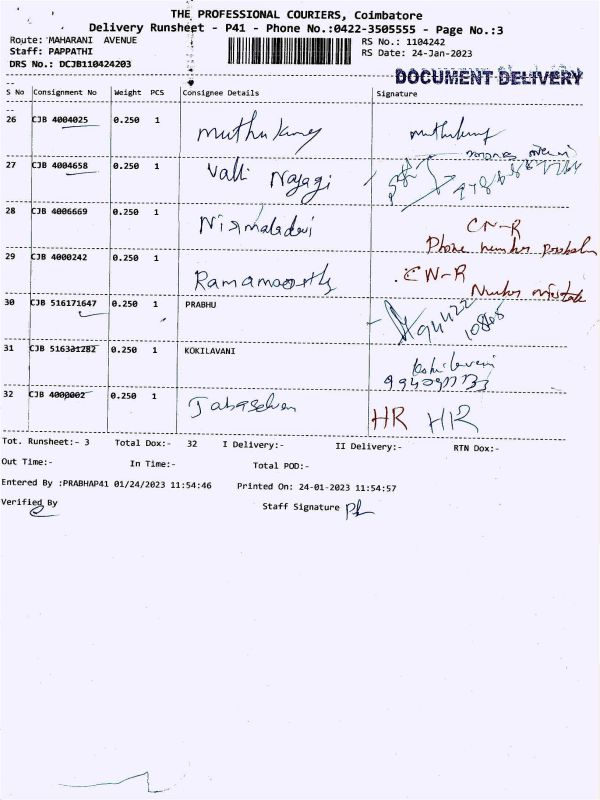 THE PROFESSIONAL COURIERS, Coimbatore
Delivery Runsheet - P41 - Phone No.:0422-3505555 - Page No.:3
Route: MAHARANI AVENUE RS No.: 1104242
Staff: PAPPATHI RS Date: 24-Jan-2023
DRS No.: DCJB110424203
DOCUMENT DELIVERY
S No Consignment No Weight PCS Consignee Details Signature
26 CJB 4004025 0.250 1 muthukumar
27 CJB 4004658 0.250 1 Valli Nayagi
28 CJB 4006669 0.250 1 Nirmaladevi CN-R
Phone number problem
29 CJB 4000242 0.250 1 Ramamoorthy CN-R
Number mistake
30 CJB 516171647 0.250 1 PRABHU
31 CJB 516331282 0.250 1 KOKILAVANI Kokilavani
32 CJB 4000002 0.250 1 Jabaselvan HR HR
Tot. Runsheet:- 3 Total Dox:- 32 I Delivery:- II Delivery:- RTN Dox:-
Out Time:- In Time:- Total POD:-
Entered By :PRABHAP41 01/24/2023 11:54:46 Printed On: 24-01-2023 11:54:57
Verified By Staff Signature